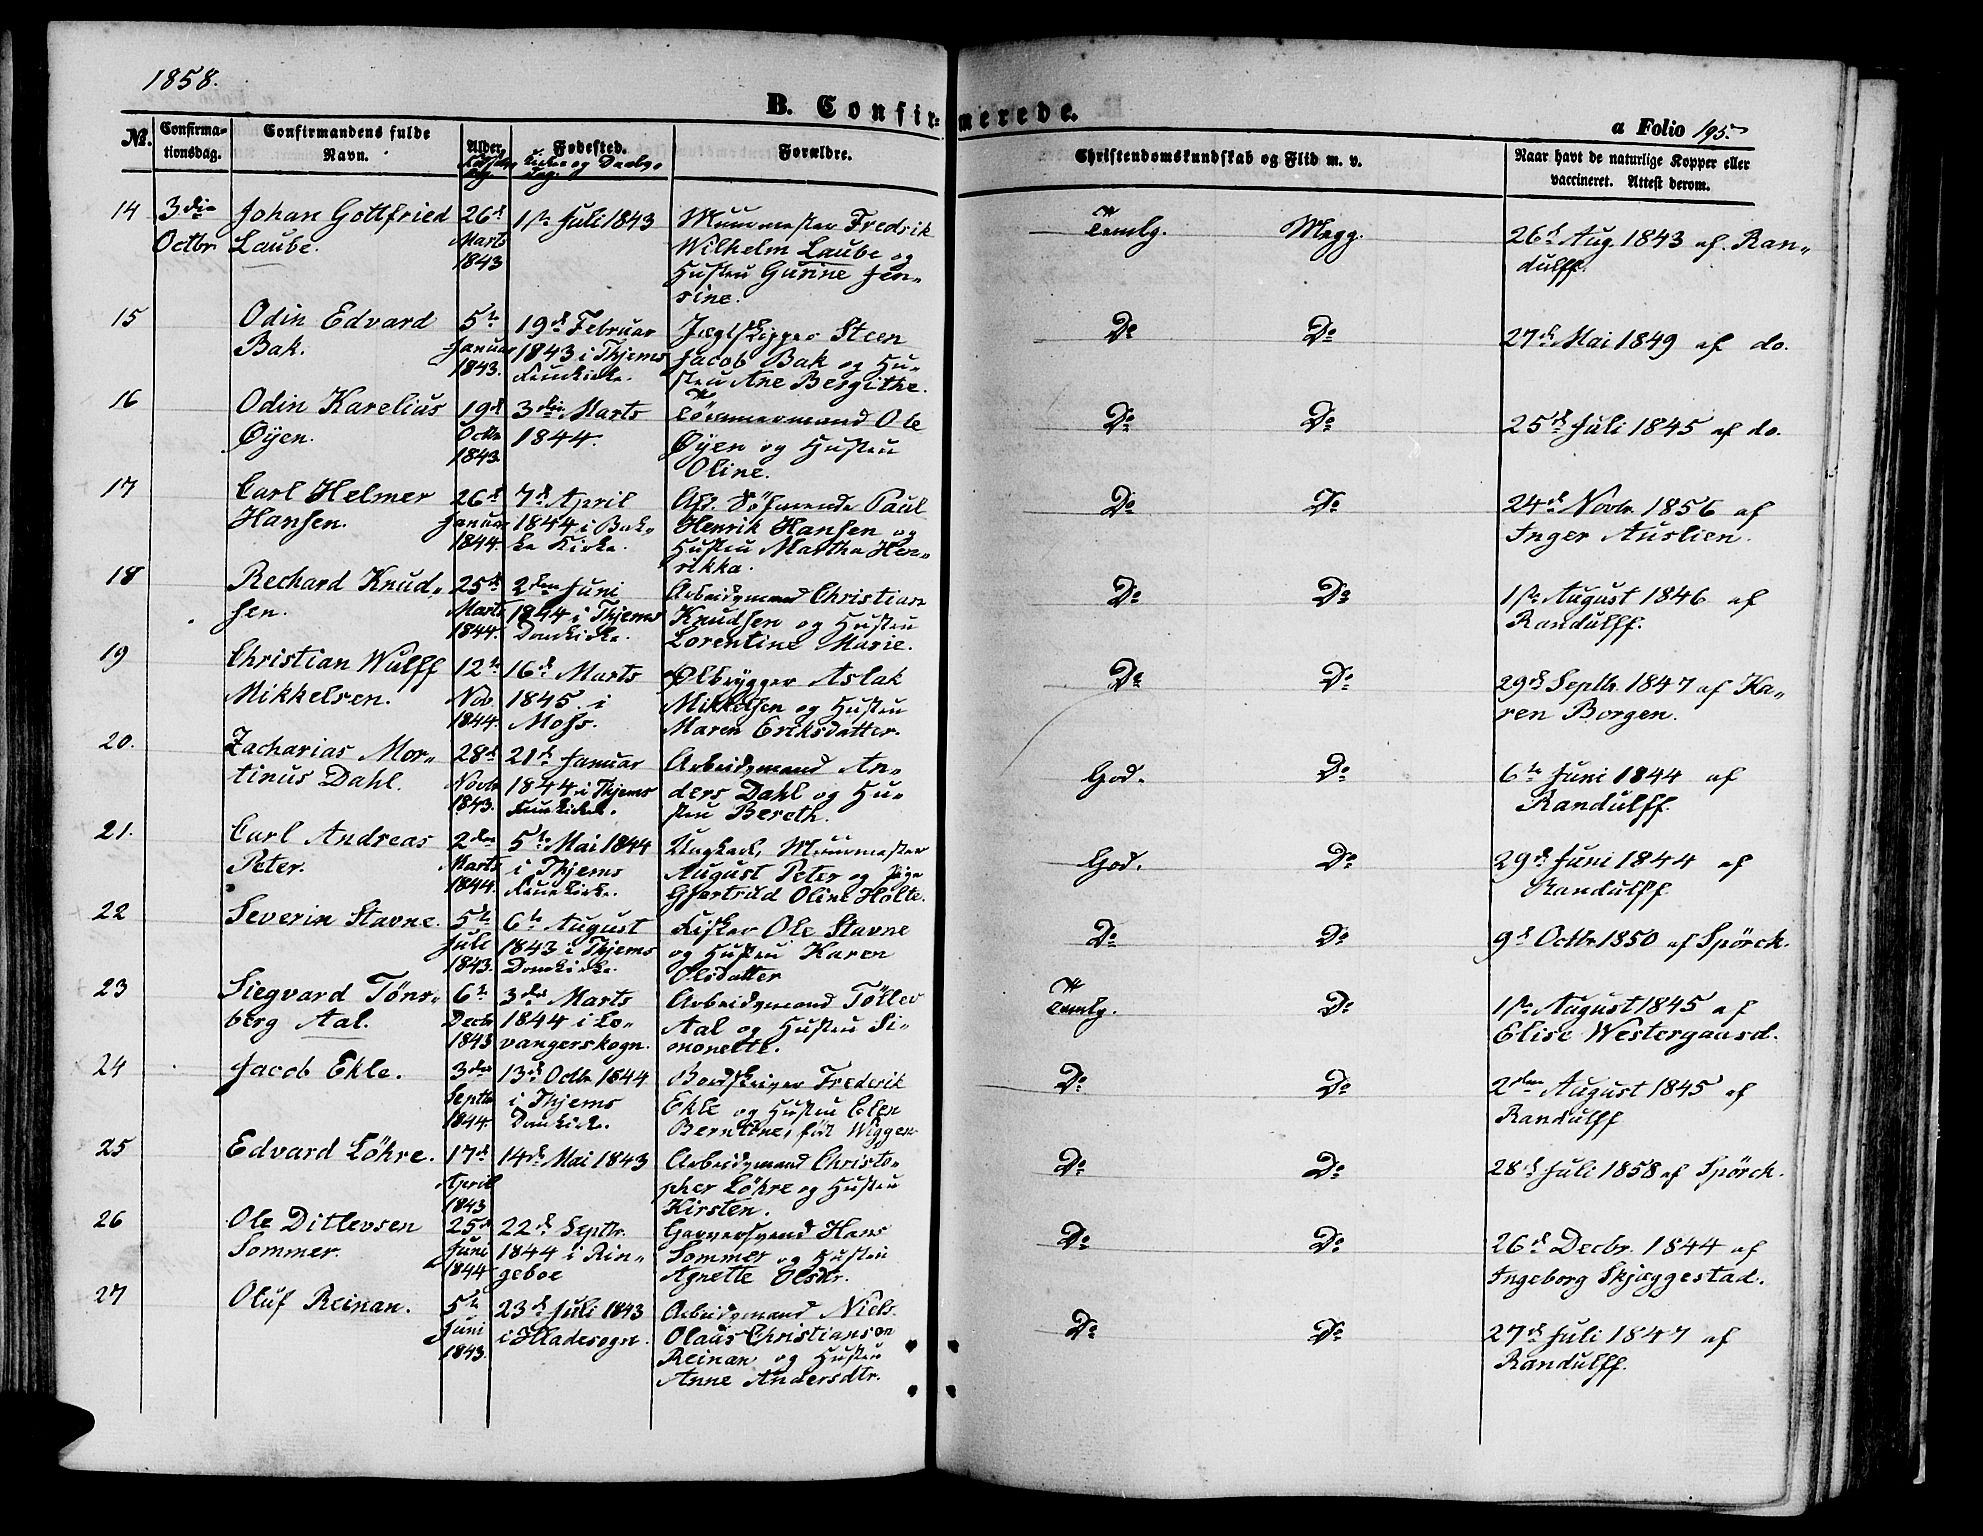 1858.
B. Confirmerede.
a Folio 195
No. Confirmationsdag. Confirmandens fulde Navn. Alder. Fødested. Forældre. Christendomskundskab og Flid m. v. Naar havt de naturlige Kopper eller vaccineret. Attest derom.
Kirke og Daabsdag.
14 3die Octbr Johan Gottfried Laube. 26d Marts 1843 1ste Juli 1843 Muurmester Fredrik Wilhelm Laube og Hustru Gurine Jensine. Temlg. Megg. 26d Aug 1843 af. Randulff.
15 Odin Edvard Bak. 5te Januar 1843. 19d Februar 1843 i Thjems Fruekirke. Jægtskipper Steen Jacob Bak og Hustru Ane Bergithe. Do Do 27d Mai 1849 af do.
16 Odin Karelius Øyen. 19d Octbr 1843 3die Marts 1844. Tömmermand Ole Øyen og Hustru Oline. Do Do 25d Juli 1845 af do.
17 Carl Helmer Hansen. 26d Januar 1844. 7d April 1844 i Bakke Kirke. Afd. Söfarende Paul Henrik Hansen og Hustru Martha Henrikka. Do Do 24d Novbr 1856 af Inger Auslien.
18 Rechard Knudsen. 25d Marts 1844. 2den Juni 1844 i Thjems Domkirke. Arbeidsmand Christian Knudsen og Hustru Lorentine Marie. Do Do 1ste August 1846 af Randulff.
19 Christian Wulff Mikkelsen. 12te Nov. 1844. 16d Marts 1845. i Moss. Ølbrygger Aslak Mikkelsen og Hustru Maren Eriksdatter. Do Do 29d Septbr 1847 af Karen Borgen.
20. Zacharias Mortinus Dahl. 28d Novbr 1843. 21d Januar 1844 i Thjems Fruekirke. Arbeidsmand Anders Dahl og Hustru Bereth. God. Do 6te Juni 1844 af Randulff.
21. Carl Andreas Peter. 2den Marts 1844. 5te Mai 1844 i Thjems Fruekirke. Ungkarl, Muurmester August Peter og Pige Gjertrud Oline Holte. God. Do 29d Juni 1844 af Randulff
22 Severin Stavne. 5te Juli 1843. 6te August 1843 i Thjems Domkirke. Fisker Ole Stavne og Hustru Karen Olsdatter Do Do 9d Octbr 1850 af Spörck.
23 Siegvard Tönsberg Aal. 6te Decbr 1843 3die Marts 1844 i Lovangerskogn. Arbeidsmand Töllev Aal og Hustru Simonette. Temlg. Do 1ste August 1845 af Elise Westergaard.
24 Jacob Ekle. 3die Septbr 1844. 13d Octbr 1844 i Thjems Domkirke. Bordskriver Frederik Ekle og Hustru Elen Berntine, föd Wiggen Do Do 2den August 1845 af Randulff
25 Edvard Löhre. 17d April 1843 14d Mai 1843 Arbeidsmand Christopher Löhre og Hustru Kirsten. Do Do 28d Juli 1858 af Spörck.
26 Ole Ditlevsen Sommer. 25d Juni 1844 22d Septbr. 1844 i Ringeboe Garversvend Hans Sommer og Hustru Agnette Olsdtr. Do Do 26d Decbr. 1844 af Ingeborg Skjæggestad.
27 Oluf Reinan. 5te Juni 1843. 23d Juli 1843 i Hladesogn. Arbeidsmand Niels Olaus Christiansen Reinan og Hustru Anne Andersdtr. Do Do 27d Juli 1847 af Randulff.